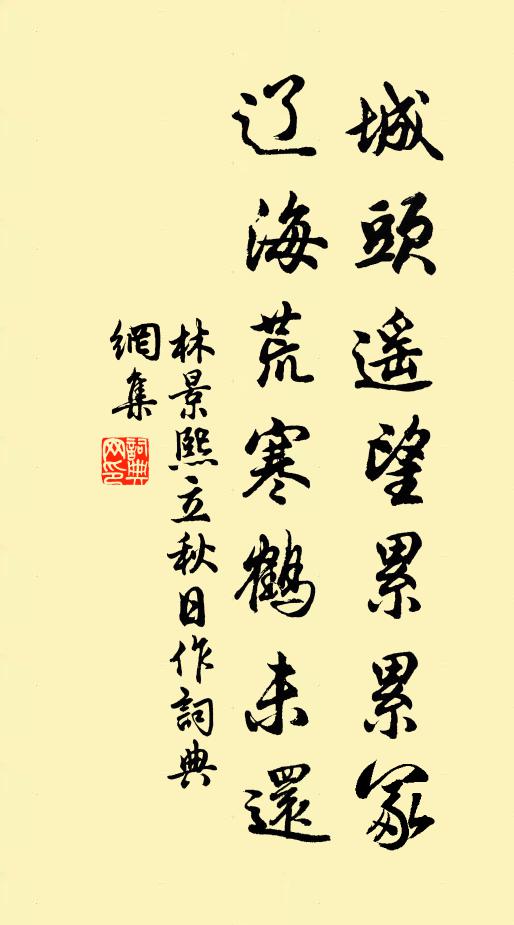 城頭遥望累累冢
辽海荒寒鶴未還
林景熙立秋日作詞典
網集
詞典网印